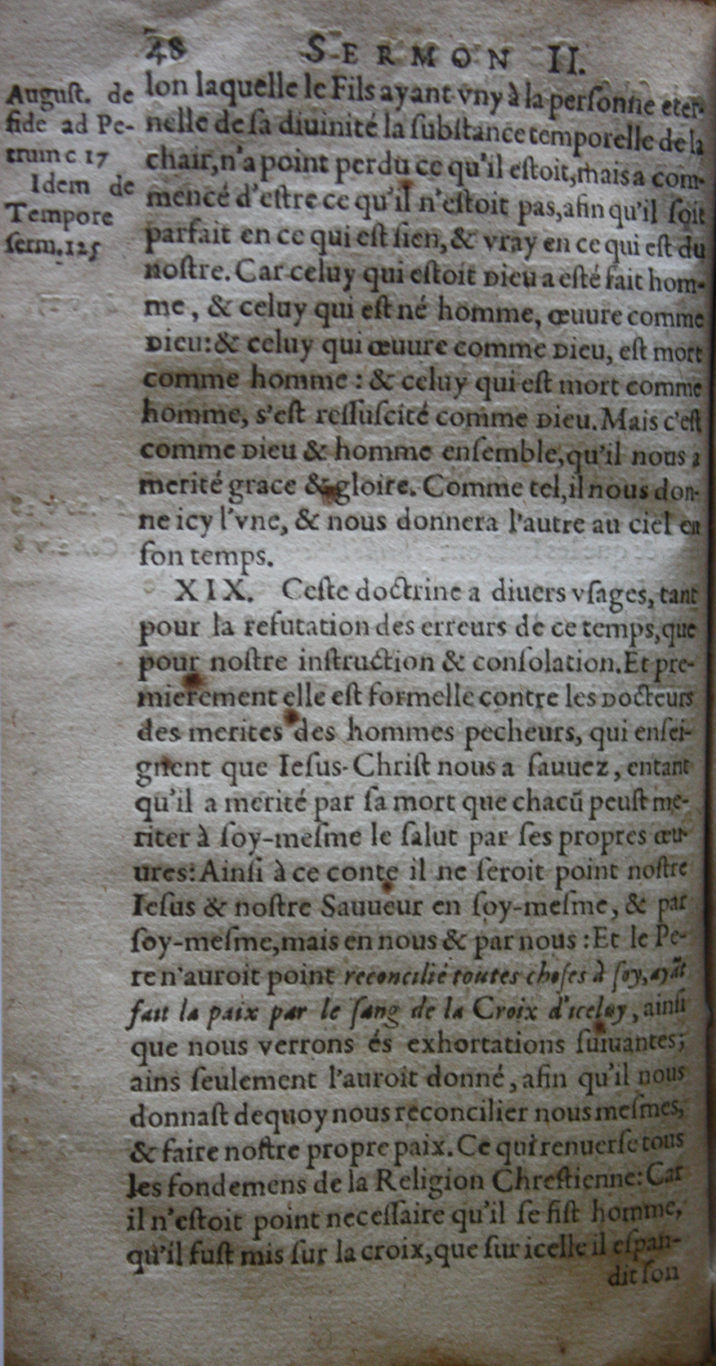 48 SERMON II.
August. de
fide ad Pe-
trum c 17
Idem de
Tempore
serm. 125
lon laquelle le Fils ayant vny à la personne eter-
nelle de sa diuinité la substance temporelle de la
chair, n'a point perdu ce qu'il estoit, mais a com-
mencé d'estre ce qu'il n'estoit pas, afin qu'il soit
parfait en ce qui est sien, & vray en ce qui est du
nostre. Car celuy qui estoit Dieu a esté fait hom-
me, & celuy qui est né homme, œuure comme
Dieu: & celuy qui œuure comme Dieu, est mort
comme homme: & celuy qui est mort comme
homme, s'est ressuscité comme Dieu. Mais c'est
comme Dieu & homme ensemble, qu'il nous a
merité grace & gloire. Comme tel, il nous don-
ne icy l'vne, & nous donnera l'autre au ciel en
son temps.
XIX. Ceste doctrine a diuers vsages, tant
pour la refutation des erreurs de ce temps, que
pour nostre instruction & consolation. Et pre-
mierement elle est formelle contre les Docteurs
des merites des hommes pecheurs, qui ensei-
gnent que Iesus-Christ nous a sauuez, entant
qu'il a merité par sa mort que chacũ peust me-
riter à soy-mesme le salut par ses propres œu-
ures: Ainsi à ce conte il ne seroit point nostre
Iesus & nostre Sauueur en soy-mesme, & par
soy-mesme, mais en nous & par nous: Et le Pe-
re n'auroit point reconcilié toutes choses à soy, ayãt
fait la paix par le sang de la Croix d'iceluy, ainsi
que nous verrons és exhortations suiuantes;
ains seulement l'auroit donné, afin qu'il nous
donnast dequoy nous reconcilier nous mesmes,
& faire nostre propre paix. Ce qui renuerse tous
les fondemens de la Religion Chrestienne: Car
il n'estoit point necessaire qu'il se fist homme,
qu'il fust mis sur la croix, que sur icelle il espan-
dit son